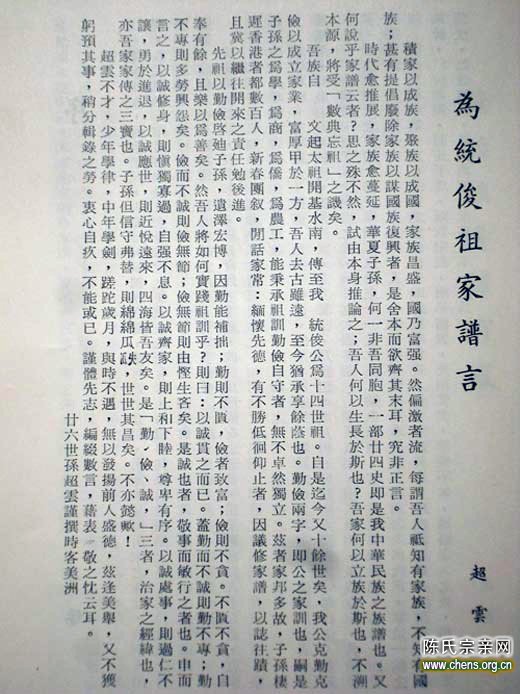 為統俊祖家譜言
超雲
積家以成族,聚族以成國,家族昌盛,國乃富强。然偏激者流,每謂吾人祗知有家族,不知有國
族;甚有提倡廢除家族以謀國族復興者,是舍本而欲齊其末耳,究非正言。
時代愈推展,家族愈蔓延,華夏子孫,何一非吾同胞,一部廿四史即是我中華民族之族譜也。又
何說乎家譜云者?思之殊不然,試由本身推論之;吾人何以生長於斯也?吾家何以立族於斯也,不溯
本源,將受「數典忘祖」之譏矣。
吾族自 文起太祖開基水南,傳至我 統俊公為十四世祖。自是迄今又十餘世矣,我公克勤克
儉以成立家業,富厚甲於一方,吾人去古雖遠,至今猶承享餘蔭也。勤儉兩字,即公之家訓也,嗣是
子孫之為學,為商,為僑,為農工,能秉承祖訓勤儉自守者,無不卓然獨立。茲者家邦多故,子孫棲
遲香港者都數百人,新春團叙,閒話家常:緬懷先德,有不勝低徊仰止者,因議修家譜,以誌往蹟,
且冀以繼往開來之責任勉後進。
先祖以勤儉啓廸子孫,遺澤宏博,因勤能補拙;勤則不匱,儉者致富;儉則不貪。不匱不貪,自
奉有餘,且樂以為善矣。然吾人將如何實踐祖訓乎?則曰:以誠貫之而已。蓋勤而不誠則勤不專;勤
不專則多勞興怨矣。儉而不誠則儉無節;儉無節則由慳生吝矣。是誠也者,敬事而敏行之者也。申而
言之,以誠修身,則愼獨寡過,自强不息。以誠齊家,則上和下睦,尊卑有序。以誠處事,則過仁不
讓,勇於進退,以誠應世,則近悅遠來,四海皆吾友矣。是「勤、儉、誠,」三者,治家之經緯也,
亦吾家家傳之三寶也。子孫但信守弗替,則綿綿瓜瓞,世世其昌矣。不亦懿歟!
超雲不才,少年學律,中年學劍,蹉跎歲月,與時不遇,無以發揚前人盛德,茲逢美舉,又不獲
躬預其事,稍分輯錄之勞。衷心自疚,不能或已。謹體先志,編綴數言,藉表 敬之忱云耳。
廿六世孫超雲謹撰時客美洲
陈氏宗亲网
www.chens.org.cn